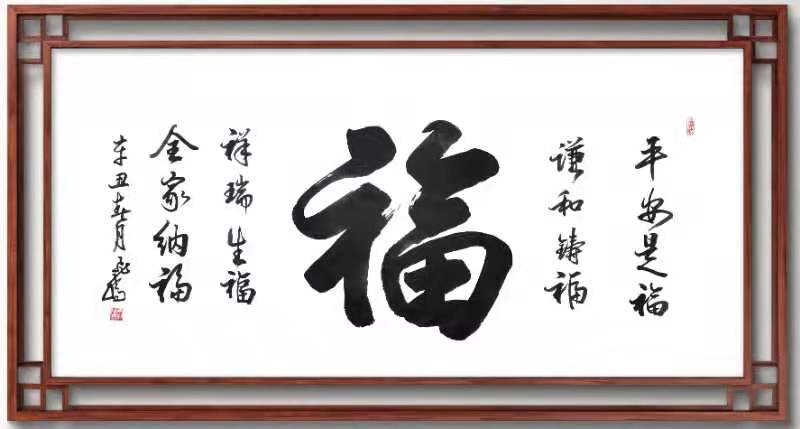 平安是福
谦和铸福
福
祥瑞生福
全家纳福
辛丑春月